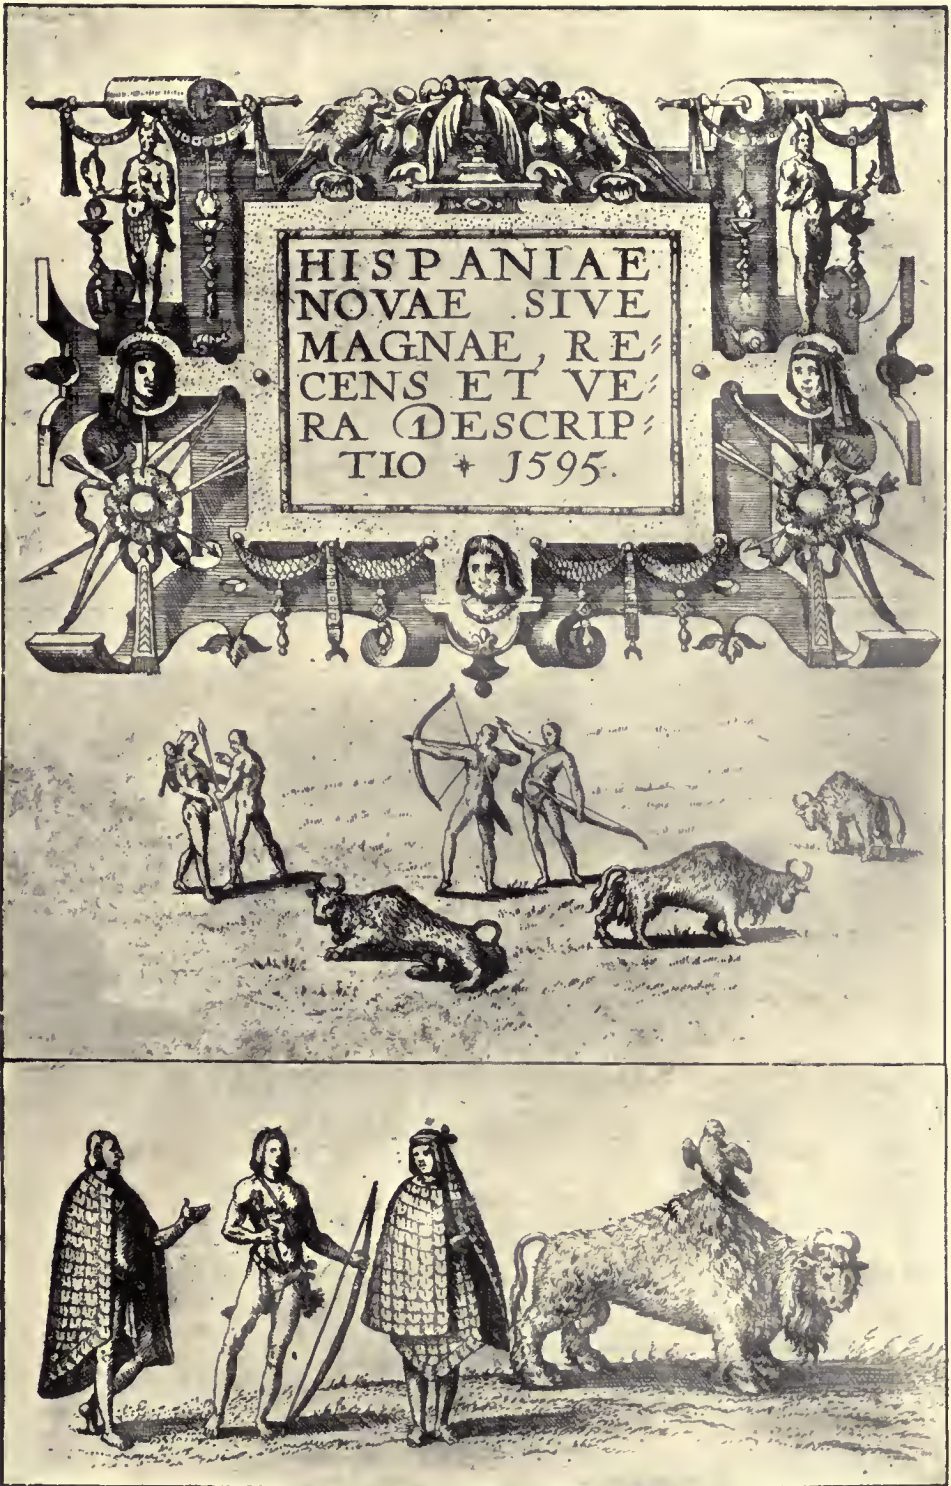 HISPANIAE
NOVAE SIVE
MAGNAE, RE⸗
CENS ET VE⸗
RA DESCRIP⸗
TIO + 1595.